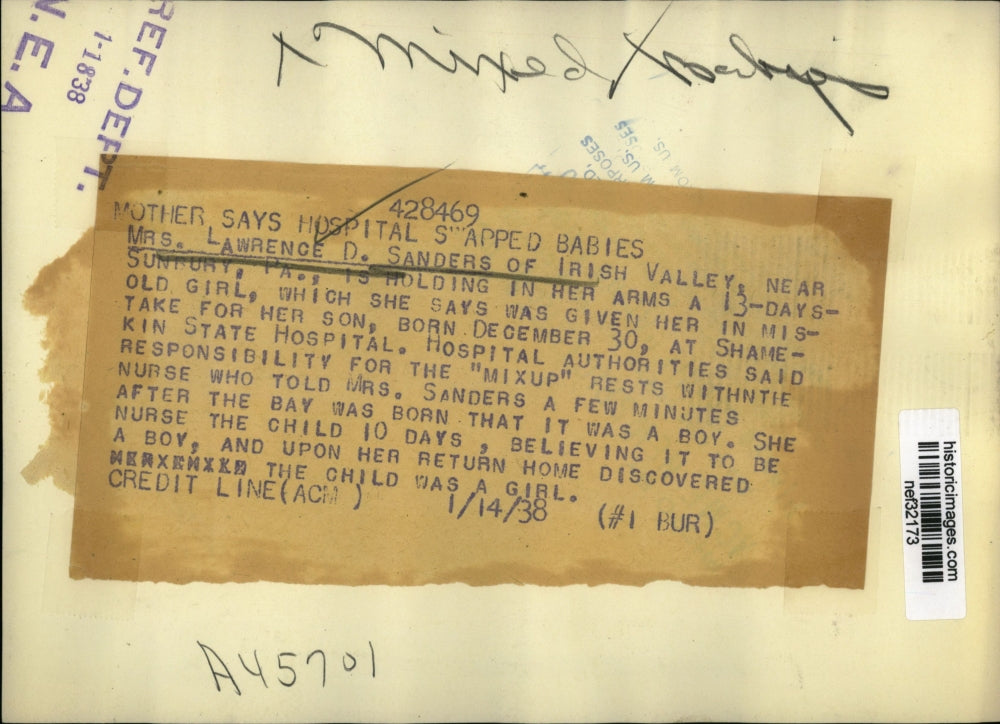 x Mixed Babies
REF. DEPT.
1-1838
N.E.A
428469
MOTHER SAYS HOSPITAL S"APPED BABIES
MRS. LAWRENCE D. SANDERS OF IRISH VALLEY, NEAR
SUNBURY, PA., IS HOLDING IN HER ARMS A 13-DAYS-
OLD GIRL, WHICH SHE SAYS WAS GIVEN HER IN MIS-
TAKE FOR HER SON, BORN DECEMBER 30, AT SHAME-
KIN STATE HOSPITAL. HOSPITAL AUTHORITIES SAID
RESPONSIBILITY FOR THE "MIXUP" RESTS WITHNTIE
NURSE WHO TOLD MRS. SANDERS A FEW MINUTES
AFTER THE BAY WAS BORN THAT IT WAS A BOY. SHE
NURSE THE CHILD 10 DAYS, BELIEVING IT TO BE
A BOY, AND UPON HER RETURN HOME DISCOVERED
THE CHILD WAS A GIRL.
CREDIT LINE(ACM) 1/14/38 (#1 BUR)
historicimages.com
nef32173
A45701